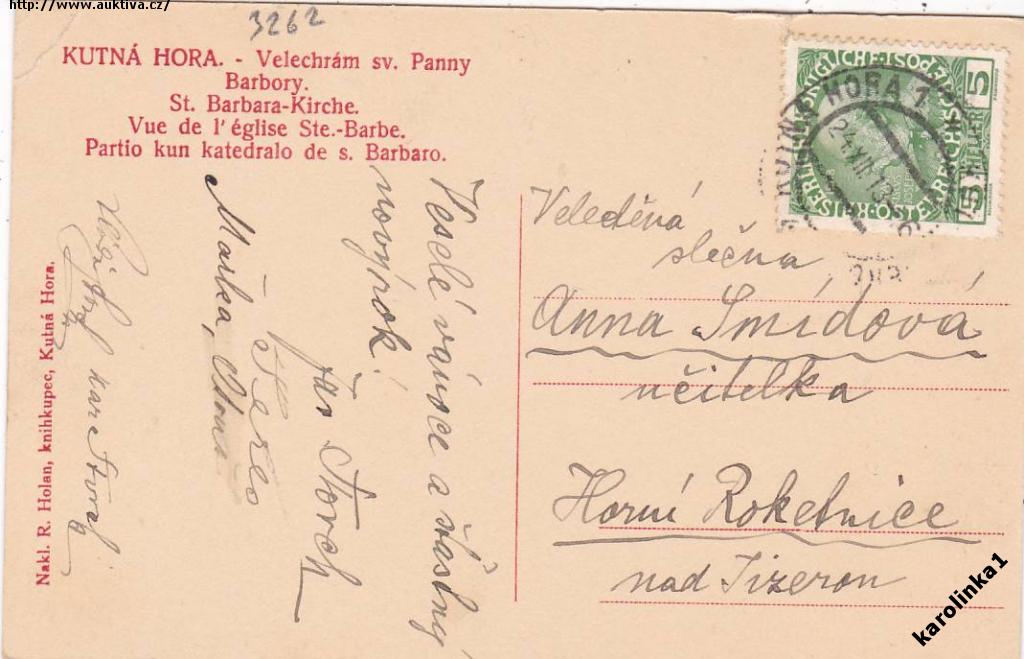 http://www.auktiva.cz/
3262
KUTNÁ HORA. - Velechrám sv. Panny
Barbory.
St. Barbara-Kirche.
Vue de l'église Ste.-Barbe.
Partio kun katedralo de s. Barbaro.
Nakl. R. Holan, knihkupec, Kutná Hora.
Veselé vánoce a šťastný
nový rok!
Jar. Štorch
Mařka,
Veleděvá
slečna
Anna Šmídová
učitelka
Horní Roketnice
nad Jizerou
KUTNÁ HORA 1
24 XII 13
5 HELLER 5
karolinka1